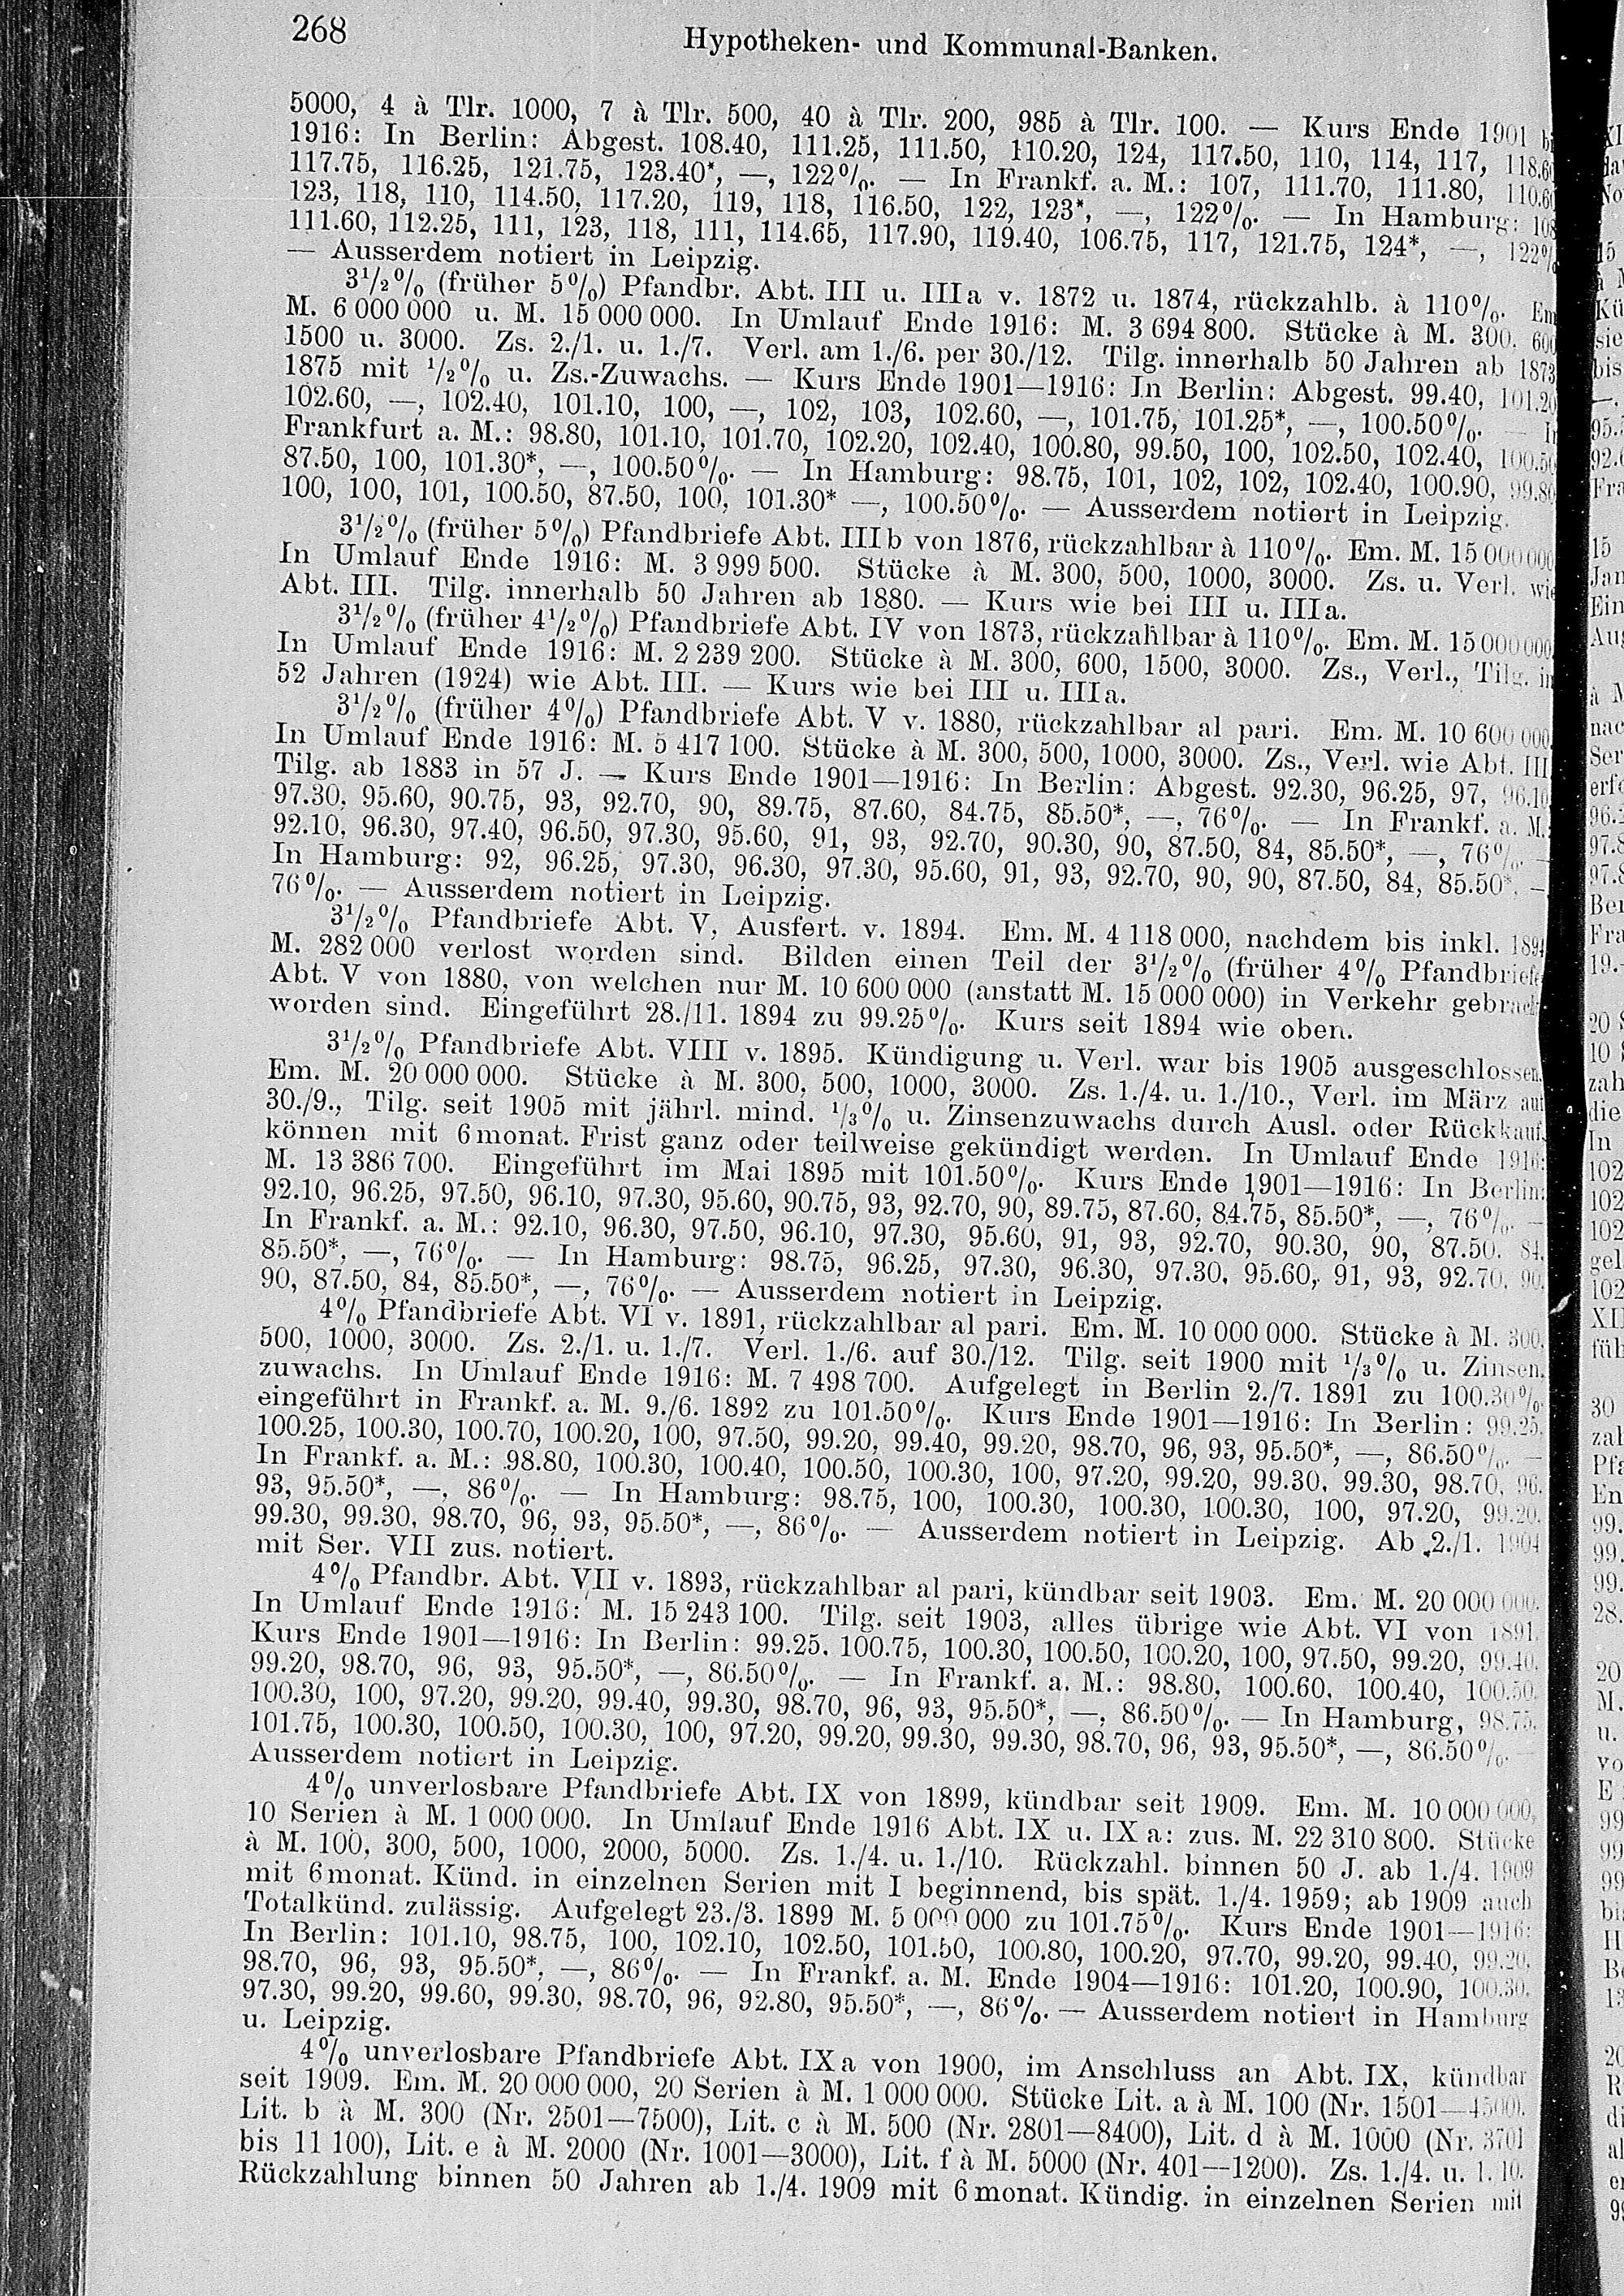 268
Hypotheken- und Kommunal-Banken.
5000, 4 à Tlr. 1000, 7 à Tlr. 500, 40 à Tlr. 200, 985 à Tlr. 100. — Kurs Ende 1901
1916: In Berlin: Abgest. 108.40, 111.25, 111.50, 110.20, 124, 117.50, 110, 114, 117, 118.60
117.75, 116.25, 121.75, 123.40*, —, 122%. — In Frankf. a. M.: 107, 111.70, 111.80, 110.60
123, 118, 110, 114.50, 117.20, 119, 118, 116.50, 122, 123*, —, 122%. — In Hamburg: 108
111.60, 112.25, 111, 123, 118, 111, 114.65, 117.90, 119.40, 106.75, 117, 121.75, 124*, —, 122%
— Ausserdem notiert in Leipzig.
3½% (früher 5%) Pfandbr. Abt. III u. IIIa v. 1872 u. 1874, rückzahlb. à 110%. Em
M. 6 000 000 u. M. 15 000 000. In Umlauf Ende 1916: M. 3 694 800. Stücke à M. 300, 600
1500 u. 3000. Zs. 2./1. u. 1./7. Verl. am 1./6. per 30./12. Tilg. innerhalb 50 Jahren ab 1873
1875 mit ½% u. Zs.-Zuwachs. — Kurs Ende 1901—1916: In Berlin: Abgest. 99.40, 101.20
102.60, —, 102.40, 101.10, 100, —, 102, 103, 102.60, —, 101.75, 101.25*, —, 100.50%. — In
Frankfurt a. M.: 98.80, 101.10, 101.70, 102.20, 102.40, 100.80, 99.50, 100, 102.50, 102.40, 100.50
87.50, 100, 101.30*, —, 100.50%. — In Hamburg: 98.75, 101, 102, 102, 102.40, 100.90, 99.80
100, 100, 101, 100.50, 87.50, 100, 101.30* —, 100.50%. — Ausserdem notiert in Leipzig.
3½% (früher 5%) Pfandbriefe Abt. IIIb von 1876, rückzahlbar à 110%. Em. M. 15 000 000
In Umlauf Ende 1916: M. 3 999 500. Stücke à M. 300, 500, 1000, 3000. Zs. u. Verl. wie
Abt. III. Tilg. innerhalb 50 Jahren ab 1880. — Kurs wie bei III u. IIIa.
3½% (früher 4½%) Pfandbriefe Abt. IV von 1873, rückzahlbar à 110%. Em. M. 15 000 000
In Umlauf Ende 1916: M. 2 239 200. Stücke à M. 300, 600, 1500, 3000. Zs., Verl., Tilg. in
52 Jahren (1924) wie Abt. III. — Kurs wie bei III u. IIIa.
3½% (früher 4%) Pfandbriefe Abt. V v. 1880, rückzahlbar al pari. Em. M. 10 600 000.
In Umlauf Ende 1916: M. 5 417 100. Stücke à M. 300, 500, 1000, 3000. Zs., Verl. wie Abt. III
Tilg. ab 1883 in 57 J. — Kurs Ende 1901—1916: In Berlin: Abgest. 92.30, 96.25, 97, 96.10
97.30, 95.60, 90.75, 93, 92.70, 90, 89.75, 87.60, 84.75, 85.50*, —, 76%. — In Frankf. a. M.:
92.10, 96.30, 97.40, 96.50, 97.30, 95.60, 91, 93, 92.70, 90.30, 90, 87.50, 84, 85.50*, —, 76%. —
In Hamburg: 92, 96.25, 97.30, 96.30, 97.30, 95.60, 91, 93, 92.70, 90, 90, 87.50, 84, 85.50*, —
76%. — Ausserdem notiert in Leipzig.
3½% Pfandbriefe Abt. V, Ausfert. v. 1894. Em. M. 4 118 000, nachdem bis inkl. 1894
M. 282 000 verlost worden sind. Bilden einen Teil der 3½% (früher 4% Pfandbriefe
Abt. V von 1880, von welchen nur M. 10 600 000 (anstatt M. 15 000 000) in Verkehr gebracht
worden sind. Eingeführt 28./11. 1894 zu 99.25%. Kurs seit 1894 wie oben.
3½% Pfandbriefe Abt. VIII v. 1895. Kündigung u. Verl. war bis 1905 ausgeschlossen.
Em. M. 20 000 000. Stücke à M. 300, 500, 1000, 3000. Zs. 1./4. u. 1./10., Verl. im März auf
30./9., Tilg. seit 1905 mit jährl. mind. ⅓% u. Zinsenzuwachs durch Ausl. oder Rückkauf,
können mit 6monat. Frist ganz oder teilweise gekündigt werden. In Umlauf Ende 1916:
M. 13 386 700. Eingeführt im Mai 1895 mit 101.50%. Kurs Ende 1901—1916: In Berlin:
92.10, 96.25, 97.50, 96.10, 97.30, 95.60, 90.75, 93, 92.70, 90, 89.75, 87.60, 84.75, 85.50*, —, 76%. —
In Frankf. a. M.: 92.10, 96.30, 97.50, 96.10, 97.30, 95.60, 91, 93, 92.70, 90.30, 90, 87.50, 84,
85.50*, —, 76%. — In Hamburg: 98.75, 96.25, 97.30, 96.30, 97.30, 95.60, 91, 93, 92.70, 90,
90, 87.50, 84, 85.50*, —, 76%. — Ausserdem notiert in Leipzig.
4% Pfandbriefe Abt. VI v. 1891, rückzahlbar al pari. Em. M. 10 000 000. Stücke à M. 300,
500, 1000, 3000. Zs. 2./1. u. 1./7. Verl. 1./6. auf 30./12. Tilg. seit 1900 mit ⅓% u. Zinsen,
zuwachs. In Umlauf Ende 1916: M. 7 498 700. Aufgelegt in Berlin 2./7. 1891 zu 100.30%
eingeführt in Frankf. a. M. 9./6. 1892 zu 101.50%. Kurs Ende 1901—1916: In Berlin: 99.25,
100.25, 100.30, 100.70, 100.20, 100, 97.50, 99.20, 99.40, 99.20, 98.70, 96, 93, 95.50*, —, 86.50%. —
In Frankf. a. M.: 98.80, 100.30, 100.40, 100.50, 100.30, 100, 97.20, 99.20, 99.30, 99.30, 98.70, 96,
93, 95.50*, —, 86%. — In Hamburg: 98.75, 100, 100.30, 100.30, 100.30, 100, 97.20, 99.20,
99.30, 99.30, 98.70, 96, 93, 95.50*, —, 86%. — Ausserdem notiert in Leipzig. Ab 2./1. 1904
mit Ser. VII zus. notiert.
4% Pfandbr. Abt. VII v. 1893, rückzahlbar al pari, kündbar seit 1903. Em. M. 20 000 000.
In Umlauf Ende 1916: M. 15 243 100. Tilg. seit 1903, alles übrige wie Abt. VI von 1891.
Kurs Ende 1901—1916: In Berlin: 99.25, 100.75, 100.30, 100.50, 100.20, 100, 97.50, 99.20, 99.40,
99.20, 98.70, 96, 93, 95.50*, —, 86.50%. — In Frankf. a. M.: 98.80, 100.60, 100.40, 100.50,
100.30, 100, 97.20, 99.20, 99.40, 99.30, 98.70, 96, 93, 95.50*, —, 86.50%. — In Hamburg, 98.75,
101.75, 100.30, 100.50, 100.30, 100, 97.20, 99.20, 99.30, 99.30, 98.70, 96, 93, 95.50*, —, 86.50%. —
Ausserdem notiert in Leipzig.
4% unverlosbare Pfandbriefe Abt. IX von 1899, kündbar seit 1909. Em. M. 10 000 000,
10 Serien à M. 1 000 000. In Umlauf Ende 1916 Abt. IX u. IX a: zus. M. 22 310 800. Stücke
à M. 100, 300, 500, 1000, 2000, 5000. Zs. 1./4. u. 1./10. Rückzahl. binnen 50 J. ab 1./4. 1909
mit 6monat. Künd. in einzelnen Serien mit I beginnend, bis spät. 1./4. 1959; ab 1909 auch
Totalkünd. zulässig. Aufgelegt 23./3. 1899 M. 5 000 000 zu 101.75%. Kurs Ende 1901—1916:
In Berlin: 101.10, 98.75, 100, 102.10, 102.50, 101.50, 100.80, 100.20, 97.70, 99.20, 99.40, 99.20,
98.70, 96, 93, 95.50*, —, 86%. — In Frankf. a. M. Ende 1904—1916: 101.20, 100.90, 100.30,
97.30, 99.20, 99.60, 99.30, 98.70, 96, 92.80, 95.50*, —, 86%. — Ausserdem notiert in Hamburg
u. Leipzig.
4% unverlosbare Pfandbriefe Abt. IXa von 1900, im Anschluss an Abt. IX, kündbar
seit 1909. Em. M. 20 000 000, 20 Serien à M. 1 000 000. Stücke Lit. a à M. 100 (Nr. 1501—4500),
Lit. b à M. 300 (Nr. 2501—7500), Lit. c à M. 500 (Nr. 2801—8400), Lit. d à M. 1000 (Nr. 3701
bis 11 100), Lit. e à M. 2000 (Nr. 1001—3000), Lit. f à M. 5000 (Nr. 401—1200). Zs. 1./4. u. 1./10.
Rückzahlung binnen 50 Jahren ab 1./4. 1909 mit 6monat. Kündig. in einzelnen Serien mit